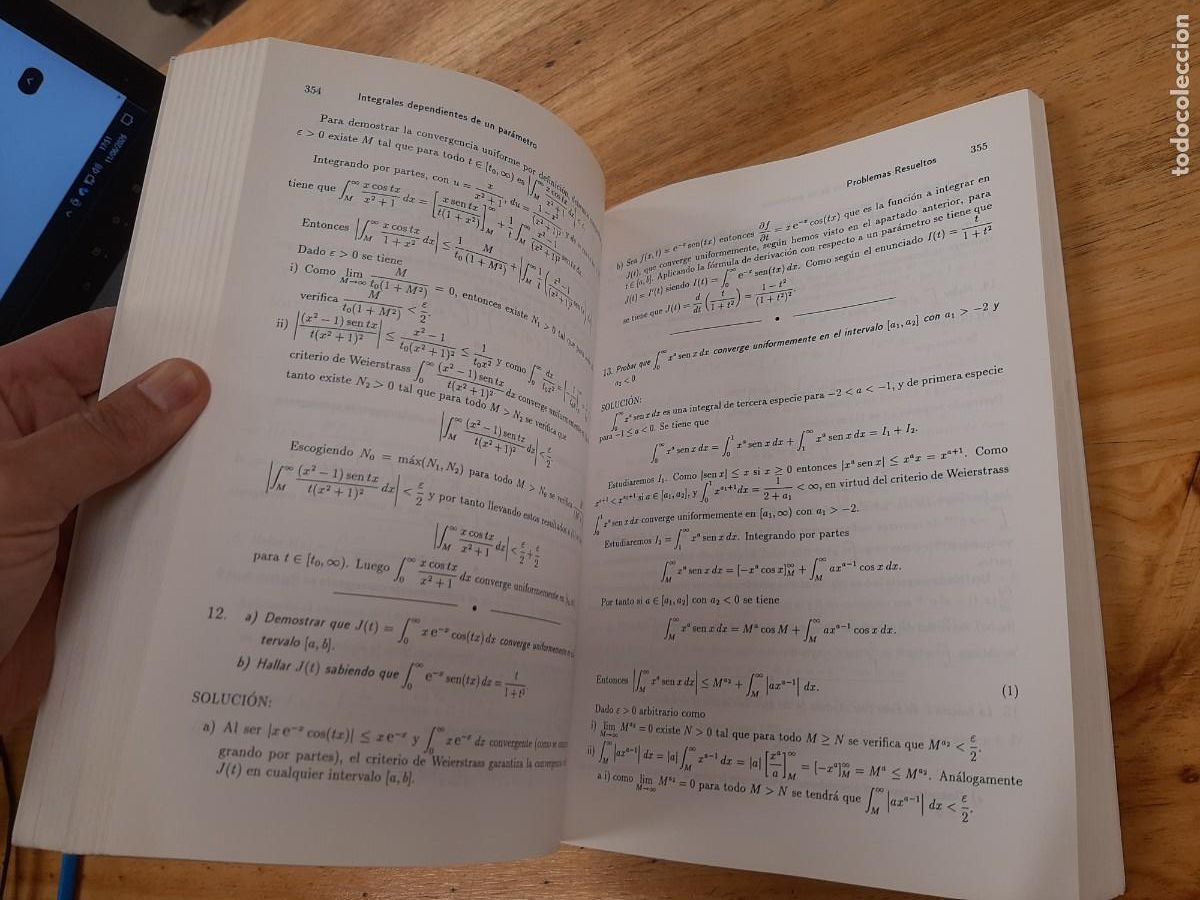 354 Integrales dependientes de un parámetro
Para demostrar la convergencia uniforme por definición,
ε > 0 existe M tal que para todo t ∈ [t₀, ∞) es |∫_M^∞ x cos tx / (x² + 1) dx|
Integrando por partes, con u = x / (x² + 1), du = (1 − x²) / (x² + 1)²
tiene que ∫_M^∞ x cos tx / (x² + 1) dx = [x sen tx / t(1 + x²)]_M^∞ + 1/t ∫_M^∞ (x² − 1) / (x² + 1)² sen tx dx
Entonces |∫_M^∞ x cos tx / (1 + x²) dx| ≤ 1/t₀ M / (1 + M²) + |∫_M^∞ 1/t (x² − 1) / (x² + 1)² sen tx
Dado ε > 0 se tiene
i) Como lim_{M→∞} M / t₀(1 + M²) = 0, entonces existe N₁ > 0 tal que para
verifica M / t₀(1 + M²) < ε/2.
ii) |(x² − 1) sen tx / t(x² + 1)²| ≤ (x² − 1) / t₀(x² + 1)² ≤ 1 / t₀x² y como ∫_0^∞ dx / t₀x² =
criterio de Weierstrass ∫_0^∞ (x² − 1) sen tx / t(x² + 1)² dx converge
tanto existe N₂ > 0 tal que para todo M > N₂ se verifica que
|∫_M^∞ (x² − 1) sen tx / t(x² + 1)² dx| < ε/2
Escogiendo N₀ = máx(N₁, N₂) para todo M > N₀ se verifica
|∫_M^∞ (x² − 1) sen tx / t(x² + 1)² dx| < ε/2 y por tanto llevando estos resultados a
|∫_M^∞ x cos tx / (x² + 1) dx| < ε/2 + ε/2
para t ∈ [t₀, ∞). Luego ∫_0^∞ x cos tx / (x² + 1) dx converge uniformemente
12. a) Demostrar que J(t) = ∫_0^∞ x e^{−x} cos(tx) dx converge uniformemente
tervalo [a, b].
b) Hallar J(t) sabiendo que ∫_0^∞ e^{−x} sen(tx) dx = t / (1 + t²)
SOLUCIÓN:
a) Al ser |x e^{−x} cos(tx)| ≤ x e^{−x} y ∫_0^∞ x e^{−x} dx convergente (como se
grando por partes), el criterio de Weierstrass garantiza la convergencia
J(t) en cualquier intervalo [a, b].
Problemas Resueltos 355
b) Sea f(x, t) = e^{−x} sen(tx) entonces ∂f/∂t = x e^{−x} cos(tx) que es la función a integrar en
J(t), que converge uniformemente, según hemos visto en el apartado anterior, para
t ∈ [a, b]. Aplicando la fórmula de derivación con respecto a un parámetro se tiene que
J(t) = I′(t) siendo I(t) = ∫_0^∞ e^{−x} sen(tx) dx. Como según el enunciado I(t) = t / (1 + t²)
se tiene que J(t) = d/dt (t / (1 + t²)) = (1 − t²) / (1 + t²)².
13. Probar que ∫_0^∞ x^a sen x dx converge uniformemente en el intervalo [a₁, a₂] con a₁ > −2 y
a₂ < 0
SOLUCIÓN:
∫_0^∞ x^a sen x dx es una integral de tercera especie para −2 < a < −1, y de primera especie
para −1 ≤ a < 0. Se tiene que
∫_0^∞ x^a sen x dx = ∫_0^1 x^a sen x dx + ∫_1^∞ x^a sen x dx = I₁ + I₂.
Estudiaremos I₁. Como |sen x| ≤ x si x ≥ 0 entonces |x^a sen x| ≤ x^a x = x^{a+1}. Como
x^{a+1} < x^{a₁+1} si a ∈ [a₁, a₂], y ∫_0^1 x^{a₁+1} dx = 1 / (2 + a₁) < ∞, en virtud del criterio de Weierstrass
∫_0^1 x^a sen x dx converge uniformemente en [a₁, ∞) con a₁ > −2.
Estudiaremos I₂ = ∫_1^∞ x^a sen x dx. Integrando por partes
∫_M^∞ x^a sen x dx = [−x^a cos x]_M^∞ + ∫_M^∞ ax^{a−1} cos x dx.
Por tanto si a ∈ [a₁, a₂] con a₂ < 0 se tiene
∫_M^∞ x^a sen x dx = M^a cos M + ∫_M^∞ ax^{a−1} cos x dx.
Entonces |∫_M^∞ x^a sen x dx| ≤ M^{a₂} + ∫_M^∞ |ax^{a−1}| dx. (1)
Dado ε > 0 arbitrario como
i) lim_{M→∞} M^{a₂} = 0 existe N > 0 tal que para todo M ≥ N se verifica que M^{a₂} < ε/2.
ii) ∫_M^∞ |ax^{a−1}| dx = |a| ∫_M^∞ x^{a−1} dx = |a| [x^a / a]_M^∞ = [−x^a]_M^∞ = M^a ≤ M^{a₂}. Análogamente
a i) como lim_{M→∞} M^{a₂} = 0 para todo M > N se tendrá que ∫_M^∞ |ax^{a−1}| dx < ε/2.
todocoleccion
17:51